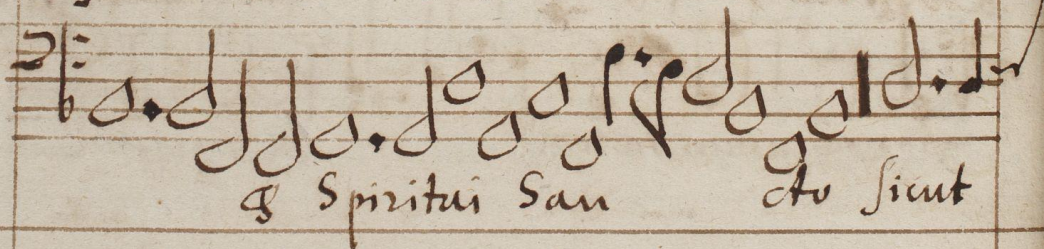 & Spiritui San cto sicut